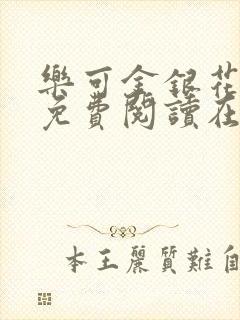 樂可金銀花
免費閱讀在
本王麗質難自